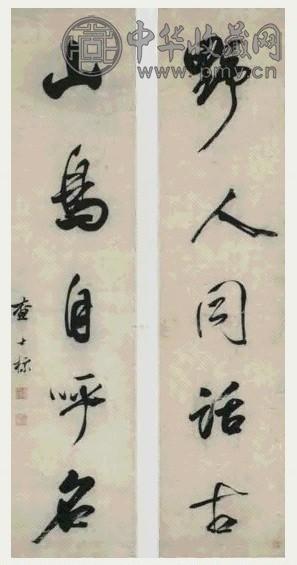 中华收藏网
www.pmw.cn
野人同话古
山鳥自呼名
查士标